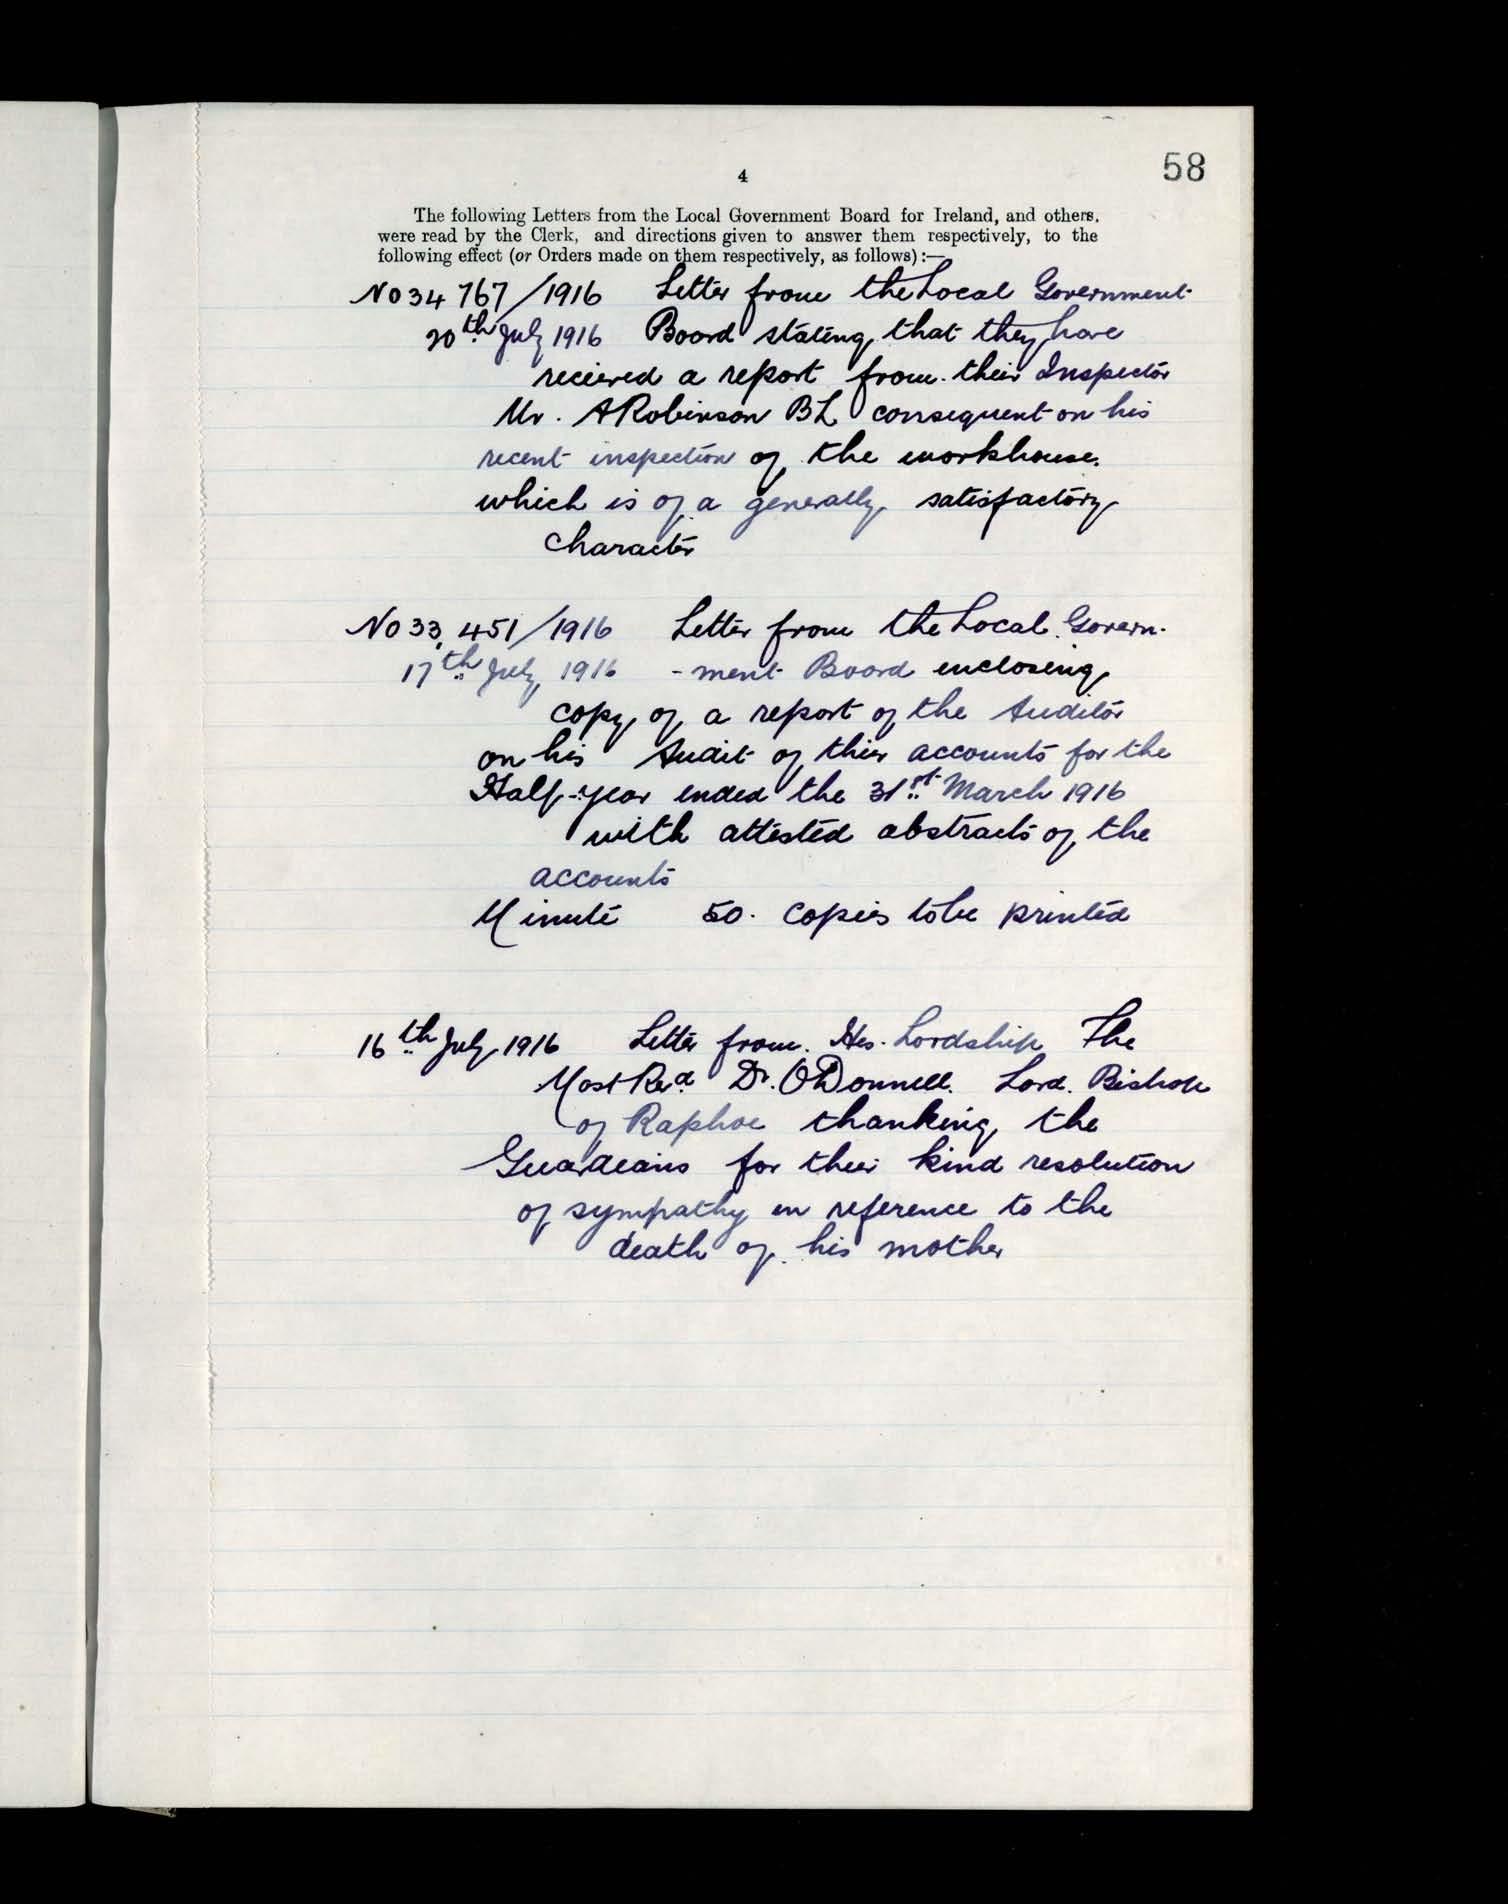 58
4
The following Letters from the Local Government Board for Ireland, and others,
were read by the Clerk, and directions given to answer them respectively, to the
following effect (or Orders made on them respectively, as follows):—
No 34 767/1916 Letter from the Local Government
20th July 1916 Board stating that they have
recieved a report from their Inspector
Mr. A Robinson BL consequent on his
recent inspection of the workhouse.
which is of a generally satisfactory
character
No 33,451/1916 Letter from the Local Govern-
17th July 1916 -ment Board enclosing
copy of a report of the Auditor
on his Audit of thier accounts for the
Half-year ended the 31st March 1916
with attested abstracts of the
accounts
Minute 50. copies to be printed
16th July 1916 Letter from His Lordship The
Most Revd Dr. O'Donnell. Lord Bishop
of Raphoe thanking the
Guardians for their kind resolution
of sympathy in reference to the
death of his mother